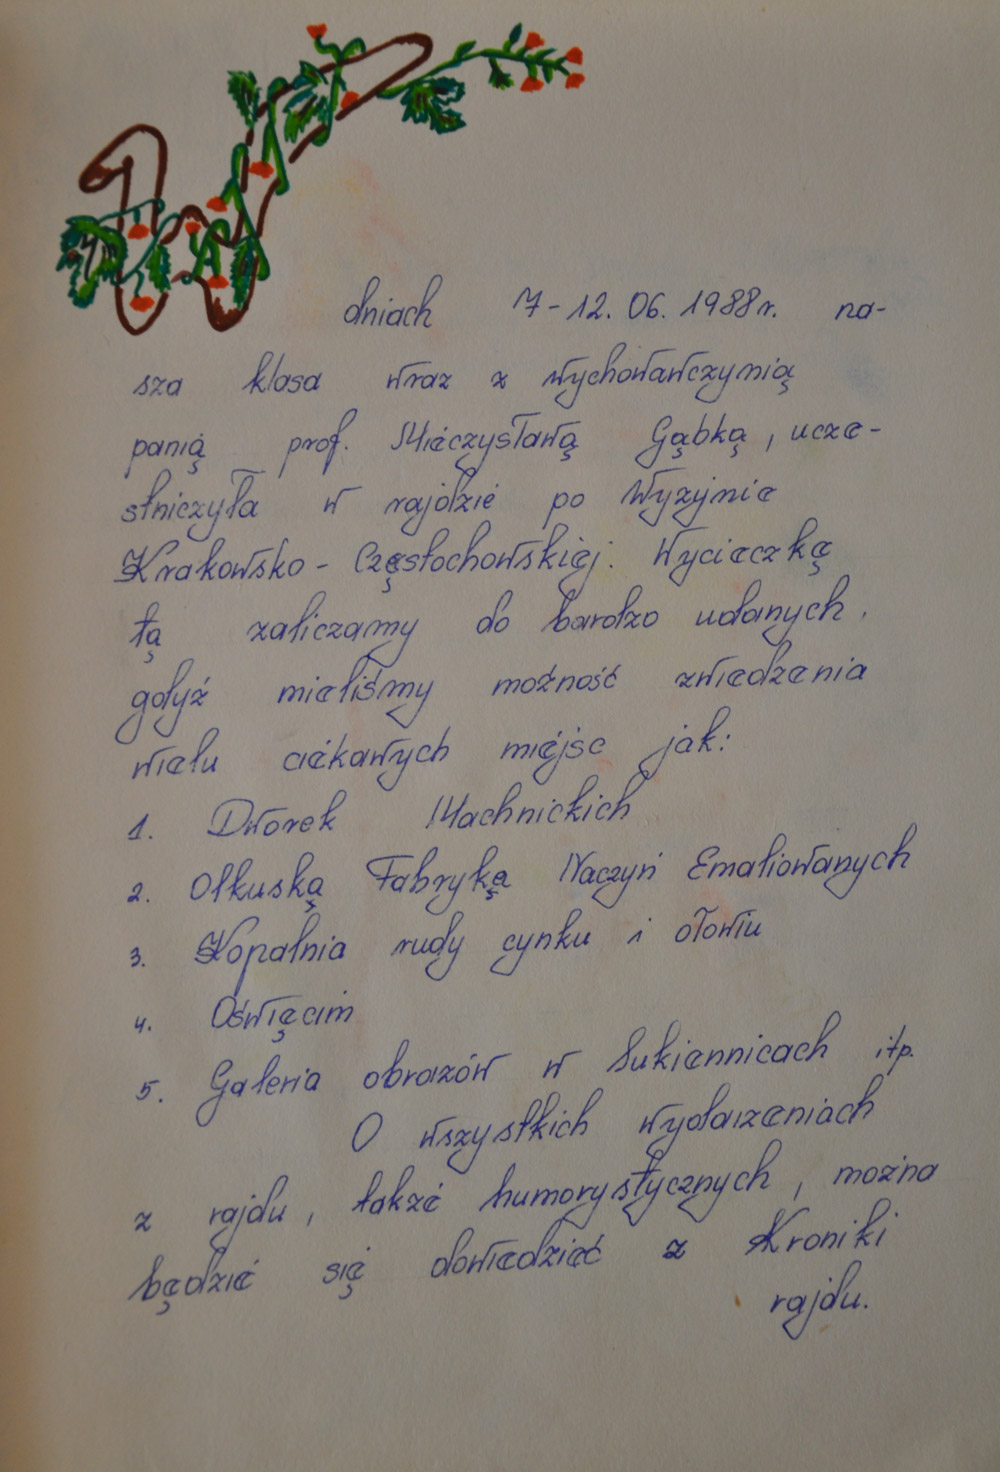 W dniach 7-12.06.1988r. na-
sza klasa wraz z wychowawczynią
panią prof. Mieczysławą Gąbką, ucze-
stniczyła w rajdzie po Wyżynie
Krakowsko - Częstochowskiej. Wycieczkę
tą zaliczamy do bardzo udanych,
gdyż mieliśmy możność zwiedzenia
wielu ciekawych miejsc jak:
1. Dworek Machnickich
2. Olkuską Fabrykę Naczyń Emaliowanych
3. Kopalnia rudy cynku i ołowiu
4. Oświęcim
5. Galeria obrazów w Sukiennicach itp.
O wszystkich wydarzeniach
z rajdu, także humorystycznych, można
będzie się dowiedzieć z Kroniki
rajdu.